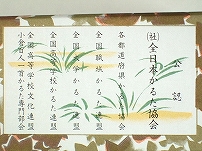 公認
㈳全日本かるた協会
各都道府県かるた協会
全国職域かるた連盟
全国大学かるた連盟
全国高等学校かるた連盟
全国高等学校文化連盟
小倉百人一首かるた専門部会